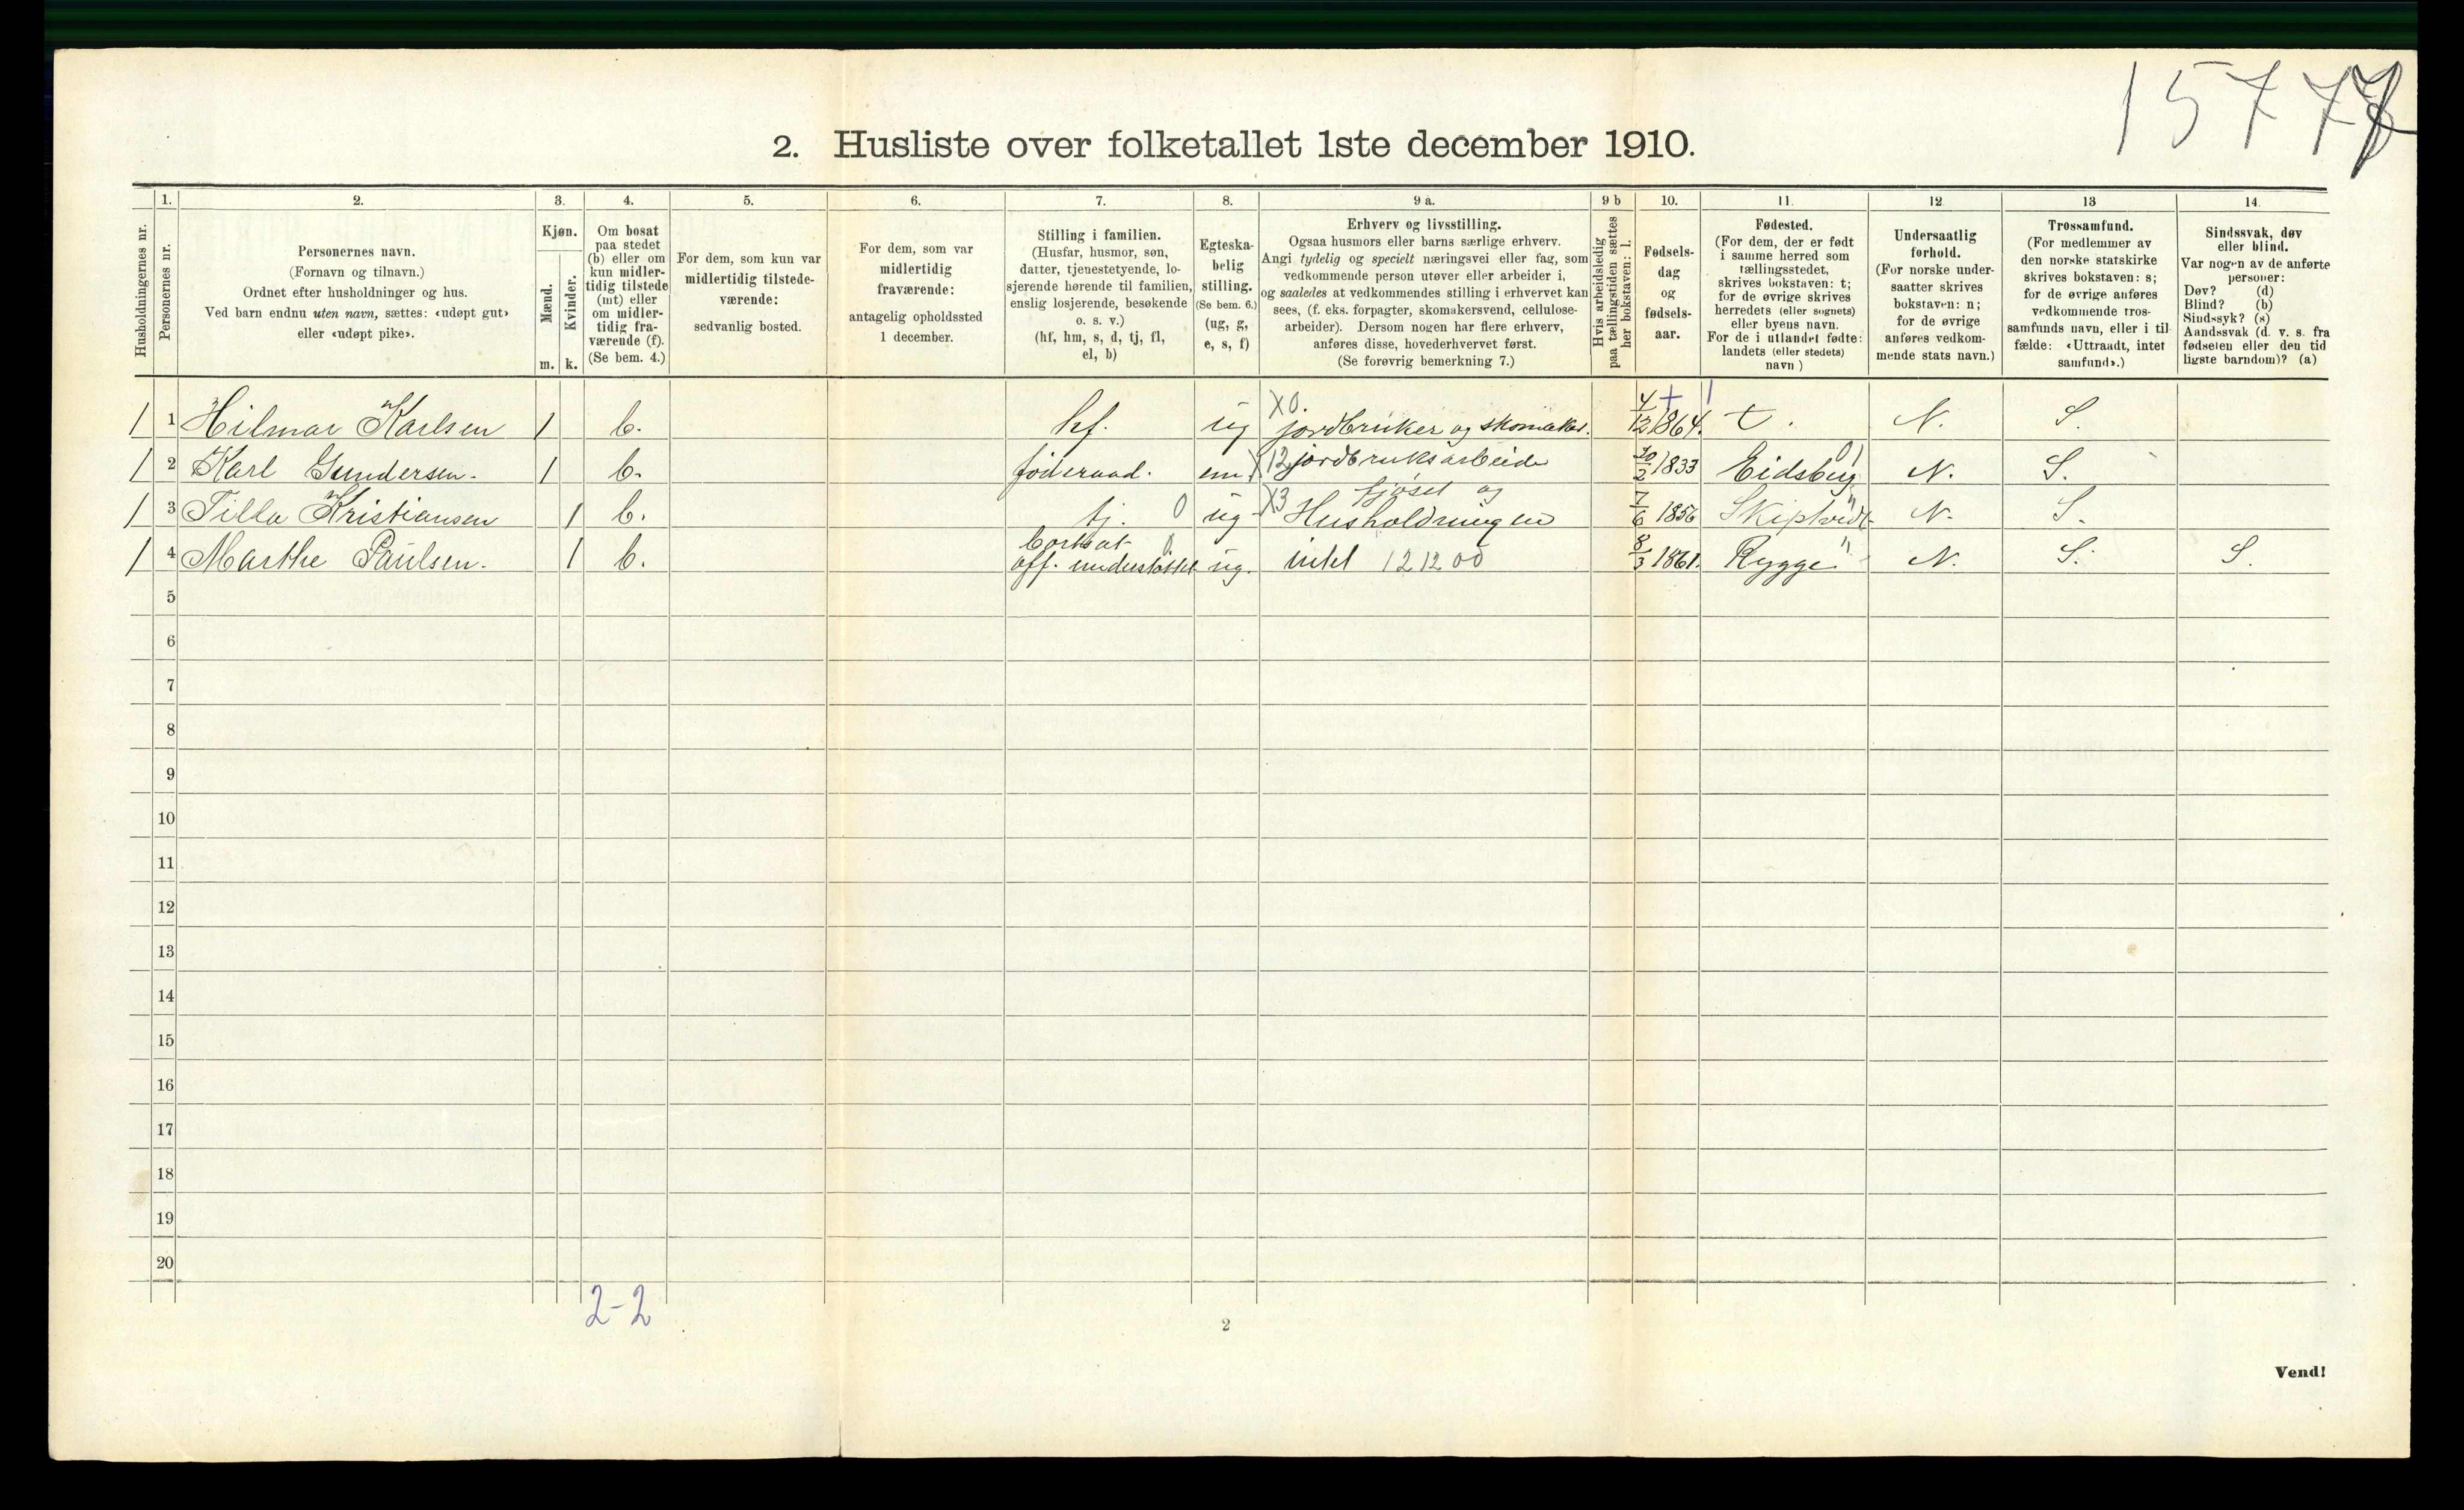 1577
2. Husliste over folketallet 1ste december 1910.
Husholdningernes nr.
1. Personernes nr.
2. Personernes navn.
(Fornavn og tilnavn.)
Ordnet efter husholdninger og hus.
Ved barn endnu uten navn, sættes: «udøpt gut»
eller «udøpt pike».
3. Kjøn.
Mænd. m.
Kvinder. k.
4. Om bosat
paa stedet
(b) eller om
kun midler-
tidig tilstede
(mt) eller
om midler-
tidig fra-
værende (f).
(Se bem. 4.)
5. For dem, som kun var
midlertidig tilstede-
værende:
sedvanlig bosted.
6. For dem, som var
midlertidig
fraværende:
antagelig opholdssted
1 december.
7. Stilling i familien.
(Husfar, husmor, søn,
datter, tjenestetyende, lo-
sjerende hørende til familien,
enslig losjerende, besøkende
o. s. v.)
(hf, hm, s, d, tj, fl,
el, b)
8. Egteska-
belig
stilling.
(Se bem. 6.)
(ug, g,
e, s, f)
9 a. Erhverv og livsstilling.
Ogsaa husmors eller barns særlige erhverv.
Angi tydelig og specielt næringsvei eller fag, som
vedkommende person utøver eller arbeider i,
og saaledes at vedkommendes stilling i erhvervet kan
sees, (f. eks. forpagter, skomakersvend, cellulose-
arbeider). Dersom nogen har flere erhverv,
anføres disse, hovederhvervet først.
(Se forøvrig bemerkning 7.)
9 b Hvis arbeidsledig
paa tællingstiden sættes
her bokstaven: l.
10. Fødsels-
dag
og
fødsels-
aar.
11. Fødested.
(For dem, der er født
i samme herred som
tællingsstedet,
skrives bokstaven: t;
for de øvrige skrives
herredets (eller sognets)
eller byens navn.
For de i utlandet fødte:
landets (eller stedets)
navn)
12 Undersaatlig
forhold.
(For norske under-
saatter skrives
bokstaven: n;
for de øvrige
anføres vedkom-
mende stats navn.)
13 Trossamfund.
(For medlemmer av
den norske statskirke
skrives bokstaven: s;
for de øvrige anføres
vedkommende tros-
samfunds navn, eller i til
fælde: «Uttraadt, intet
samfund».)
14. Sindssvak, døv
eller blind.
Var nogen av de anførte
personer:
Døv? (d)
Blind? (b)
Sindssyk? (s)
Aandssvak (d. v. s. fra
fødselen eller den tid
ligste barndom)? (a)
1 1 Hilmar Karlsen 1 b. hf. ug X0. jordbruker og skomaker. 4/12 1864. t. N. S.
1 2 Karl Gundersen. 1 b. föderaad. em X12 jordbruksarbeide 20/2 1833 Eidsberg 01 N. S.
1 3 Tilla Kristiansen 1 b. tj. 0 ug X3 fjøset og
Husholdningen 7/6 1856 Skiptvedt " N. S.
1 4 Marthe Paulsen. 1 b. bortsat 0
off. understöttet ug. intet 121200 8/3 1861. Rygge " N. S. S.
5
6
7
8
9
10
11
12
13
14
15
16
17
18
19
20
2-2
2
Vend!